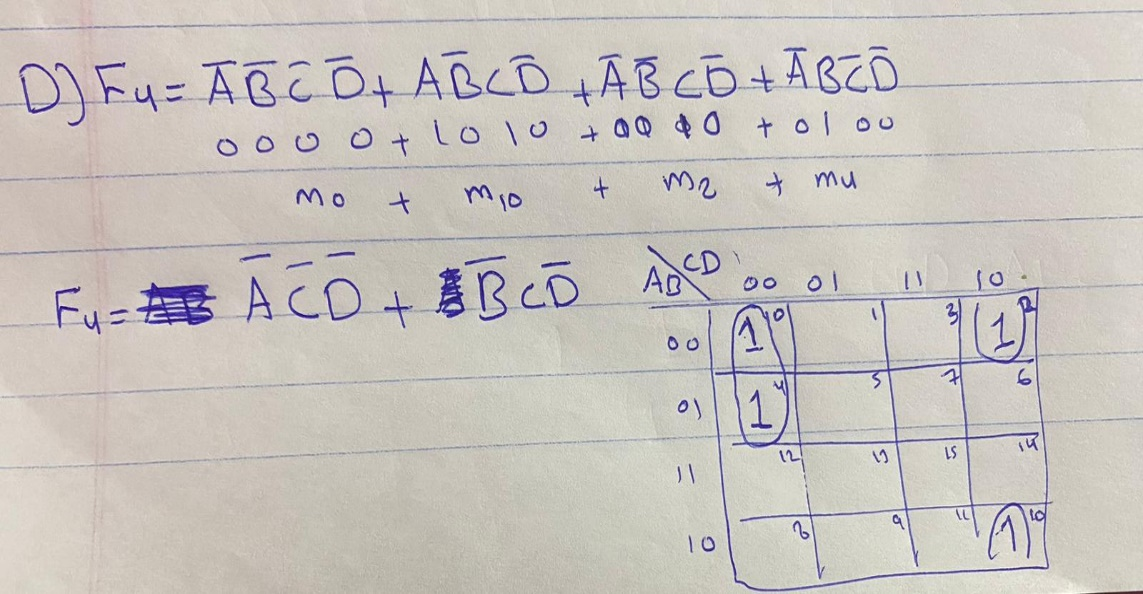 D) F₄ = A̅ B̅ C̅ D̅ + A B̅ C D̅ + A̅ B̅ C D̅ + A̅ B C̅ D̅
0 0 0 0 + 1 0 1 0 + 0 0 1 0 + 0 1 0 0
m0 + m10 + m2 + m4
F₄ = A̅ C̅ D̅ + B̅ C D̅
AB\CD 00 01 11 10
00 1 0 1 3 1 2
01 1 4 5 7 6
11 12 13 15 14
10 8 9 11 1 10